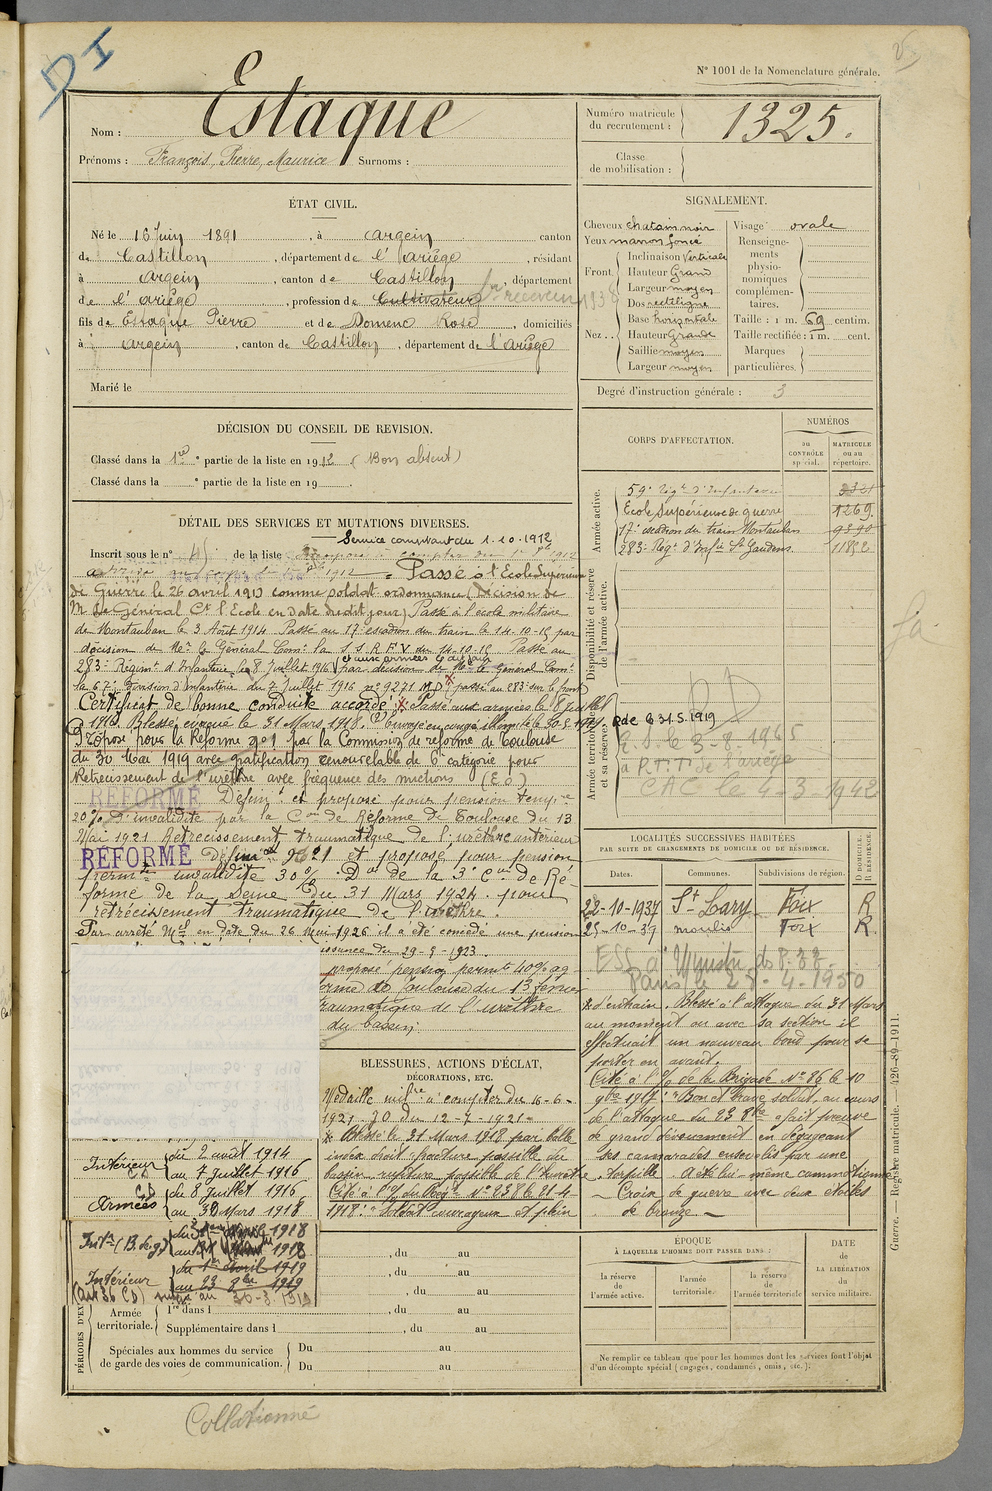 DI
N° 1001 de la Nomenclature générale.
Nom : Estaque
Prénoms : François, Pierre, Maurice Surnoms :
Numéro matricule du recrutement : 1325.
Classe de mobilisation :
ÉTAT CIVIL.
Né le 16 Juin 1891, à Argein canton
de Castillon, département de l'Ariège, résidant
à Argein, canton de Castillon, département
de l'Ariège, profession de Cultivateur
fils de Estaque Pierre et de Domenc Rose, domiciliés
à Argein, canton de Castillon, département de l'Ariège
Marié le
SIGNALEMENT.
Cheveux chatain noir
Yeux marron foncé
Front. Inclinaison Verticale
Hauteur Grand
Largeur moyen
Nez. Dos rectiligne
Base horizontale
Hauteur Grande
Saillie moyen
Largeur moyen
Visage ovale
Renseignements physionomiques complémentaires.
Taille : 1 m. 69 centim.
Taille rectifiée : 1 m. cent.
Marques particulières.
Degré d'instruction générale : 3
DÉCISION DU CONSEIL DE REVISION.
Classé dans la 1re partie de la liste en 1912 (Bon absent)
Classé dans la e partie de la liste en 19
CORPS D'AFFECTATION.
NUMÉROS
au contrôle spécial.
MATRICULE ou au répertoire.
Armée active.
59e Régt d'Infanterie
Ecole Supérieure de guerre 1269.
17e escadron du train Montauban 9390
283e Régt d'Infie St Gaudens 11852
Disponibilité et réserve de l'armée active.
Armée territoriale et sa réserve.
DÉTAIL DES SERVICES ET MUTATIONS DIVERSES.
Service comptant du 1-10-1912
Inscrit sous le n° 45 de la liste
Passé à l'Ecole Supérieure
de Guerre le 26 avril 1913 comme soldat ordonnance (Décision de
M. le Général Ct l'Ecole en date dudit jour) Passé à l'école militaire
de Montauban le 3 Août 1914 Passé au 17e escadron du train le 14-10-15 par
décision de Mr le Général Comt la S.S.R.F.V. du 14-10-15 Passé au
283e Régimt d'Infanterie le 8 Juillet 1916 par décision de Mr le Général Comt
la 67e Division d'Infanterie du 7 Juillet 1916 n° 9271 passé au 283e sur le front
Certificat de bonne conduite accordé. Passé aux armées le 8 juillet
1916. Blessé évacué le 31 Mars 1918. Envoyé en congé illimité le 30.5.1919.
Proposé pour la Réforme n°1 par la Commission de réforme de Toulouse
du 30 Mai 1919 avec gratification renouvelable de 6e catégorie pour
Retrecissement de l'urèthre avec fréquence des mictions
RÉFORMÉ Définit et proposé pour pension tempre
20% d'invalidité par la Con de Réforme de Toulouse du 13
Mai 1921 Rétrecissement traumatique de l'urèthre antérieur
RÉFORMÉ et proposé pour pension
permte invalidité 30% Don de la 3e Con de Ré
forme de la Seine du 31 Mars 1924 pour
retrécissement traumatique de l'urèthre.
Par arrêté Mel en date du 26 Mai 1926 il a été concédé une pension
jouissance du 29-5-1923.
proposé pension permte 40%
Toulouse du 13 février
traumatique de l'urèthre
du bassin.
R de C 31.5.1919
R.S. le 3-8-1925
à P.T.T. de l'ariège
CAC le 4-3-1942
LOCALITÉS SUCCESSIVES HABITÉES
PAR SUITE DE CHANGEMENTS DE DOMICILE OU DE RÉSIDENCE.
Dates. Communes. Subdivisions de région. D DOMICILE. R RÉSIDENCE.
22-10-1937 St Lary Foix R
25-10-39 moulis Foix R
Paris le 28-4-1950
BLESSURES, ACTIONS D'ÉCLAT, DÉCORATIONS, ETC.
Médaille mil.re à compter du 16-6-
1921. JO du 12-7-1921
Blessé le 31 Mars 1918 par balle
index droit fracture possible du
bassin, rupture possible de l'urèthre
Cité à l'O/ du Régt N° 238 le 21 4
1918: "Soldat courageux et plein
d'entrain. Blessé à l'attaque du 31 Mars
au moment ou avec sa section il
effectuait un nouveau bond pour se
porter en avant.
Cité à l'O/ de la Brigade N° 86 le 10
9bre 1917: "Bon et brave soldat, au cours
de l'attaque du 23 8bre a fait preuve
de grand dévouement en dégageant
ses camarades ensevelis par une
torpille. A été lui-même commotionné
Croix de guerre avec deux étoiles
de bronze
Intérieur CD du 2 août 1914
au 7 juillet 1916
Armées CD du 8 Juillet 1916
au 30 Mars 1918
Intr (B. de g)
Intérieur du 1er Avril 1919
au 23 8bre 1919
(art 36 CD)
PÉRIODES D'EX
Armée territoriale.
1re dans l , du au
Supplémentaire dans l , du au
Spéciales aux hommes du service de garde des voies de communication.
Du au
Du au
ÉPOQUE
À LAQUELLE L'HOMME DOIT PASSER DANS :
la réserve de l'armée active.
l'armée territoriale.
la réserve de l'armée territoriale
DATE de LA LIBÉRATION du service militaire.
Ne remplir ce tableau que pour les hommes dont les services font l'objet d'un décompte spécial (engagés, condamnés, omis, etc.).
Guerre. — Registre matricule. — 426-89-1911.
Collationné